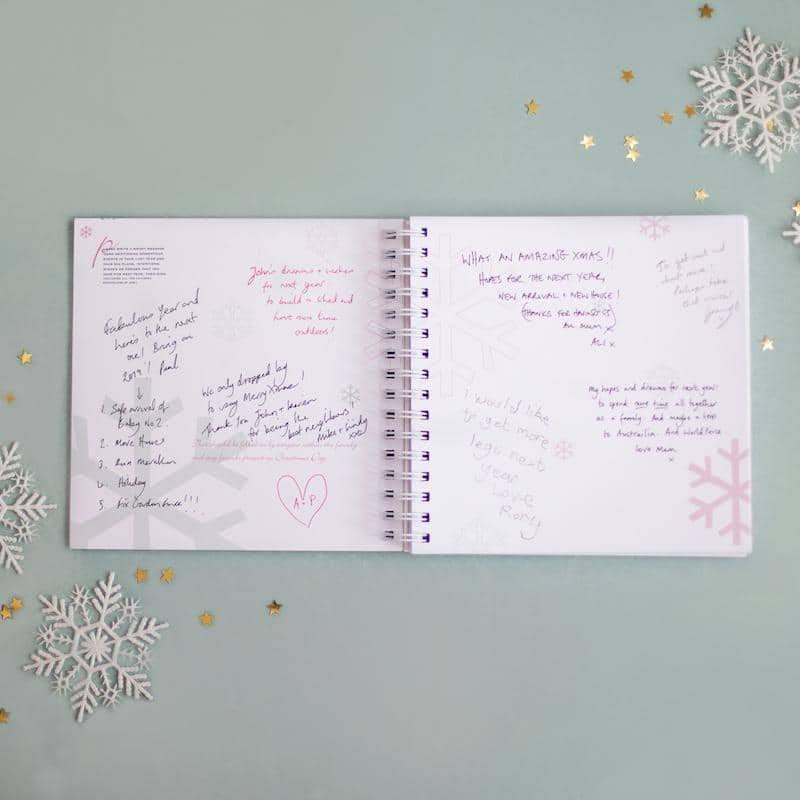 Fabulous Year and
here's to the next
one! Bring on
2019! Paul
1. Safe arrival of
Baby No2.
2. Move House
3. Run Marathon
4. Holiday
5. Fix Garden Fence!!!
John's dreams + wishes
for next year
to build a shed and
have more time
outdoors!
We only dropped by
to say Merry Xmas!
Thank You John + Karen
for being the
best neighbours!
Mike + Cindy
xxx
A + P
WHAT AN AMAZING XMAS!!
HOPES FOR THE NEXT YEAR,
NEW ARRIVAL + NEW HOUSE!
(THANKS FOR HAVING US)
MUM x
ALI x
To get out and
perhaps take
that
I would like
to get more
lego next
year
Love
Rory
My hopes and dreams for next year?
to spend more time all together
as a family. And maybe a
to Australia. And World Peace
Love Mum
x